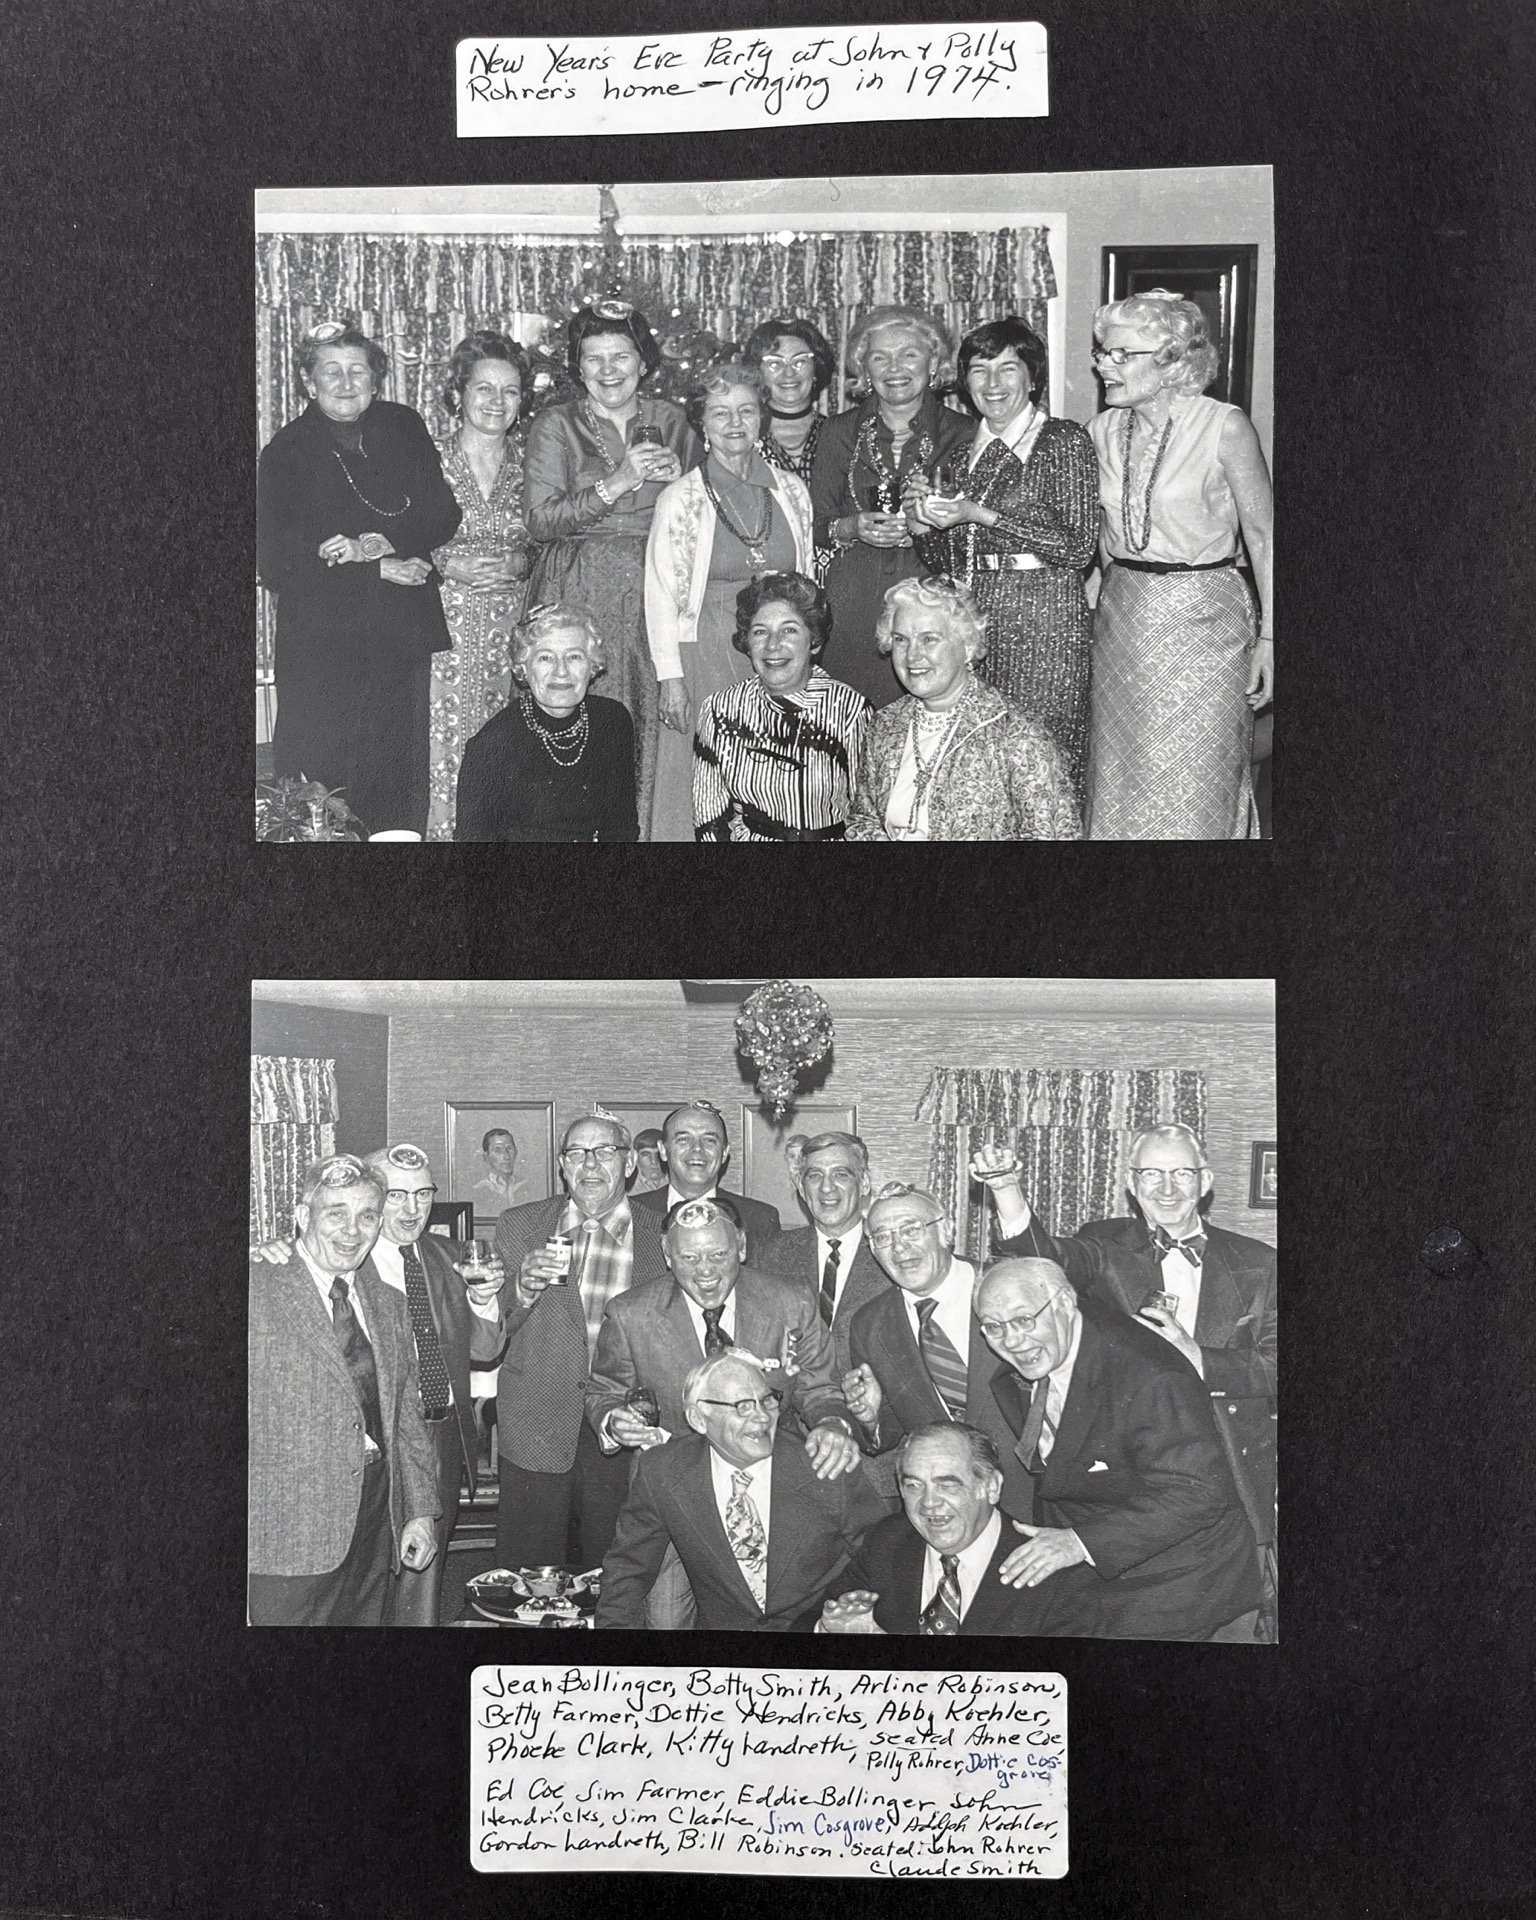 New Year's Eve Party at John & Polly
Rohrer's home - ringing in 1974.
Jean Bollinger, Betty Smith, Arline Robinson,
Betty Farmer, Dottie Hendricks, Abby Koehler,
Phoebe Clark, Kitty Landreth, seated Anne Coe,
Polly Rohrer, Dottie Cos-
grove
Ed Coe, Jim Farmer, Eddie Bollinger John
Hendricks, Jim Clarke, Jim Cosgrove, Adolph Koehler,
Gordon Landreth, Bill Robinson. seated: John Rohrer
Claude Smith